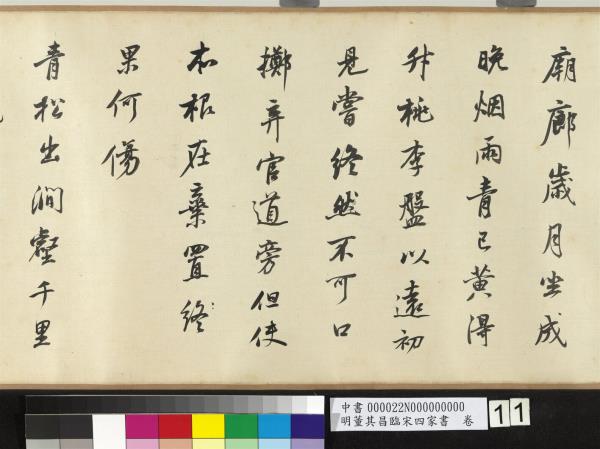 廟廊歲月坐成
晚烟雨青已黃得
升桃李盤以遠初
見嘗終然不可口
擲弃官道旁但使
本根在棄置終
果何傷
青松出澗壑千里
中書 000022N000000000
明董其昌臨宋四家書 卷
11